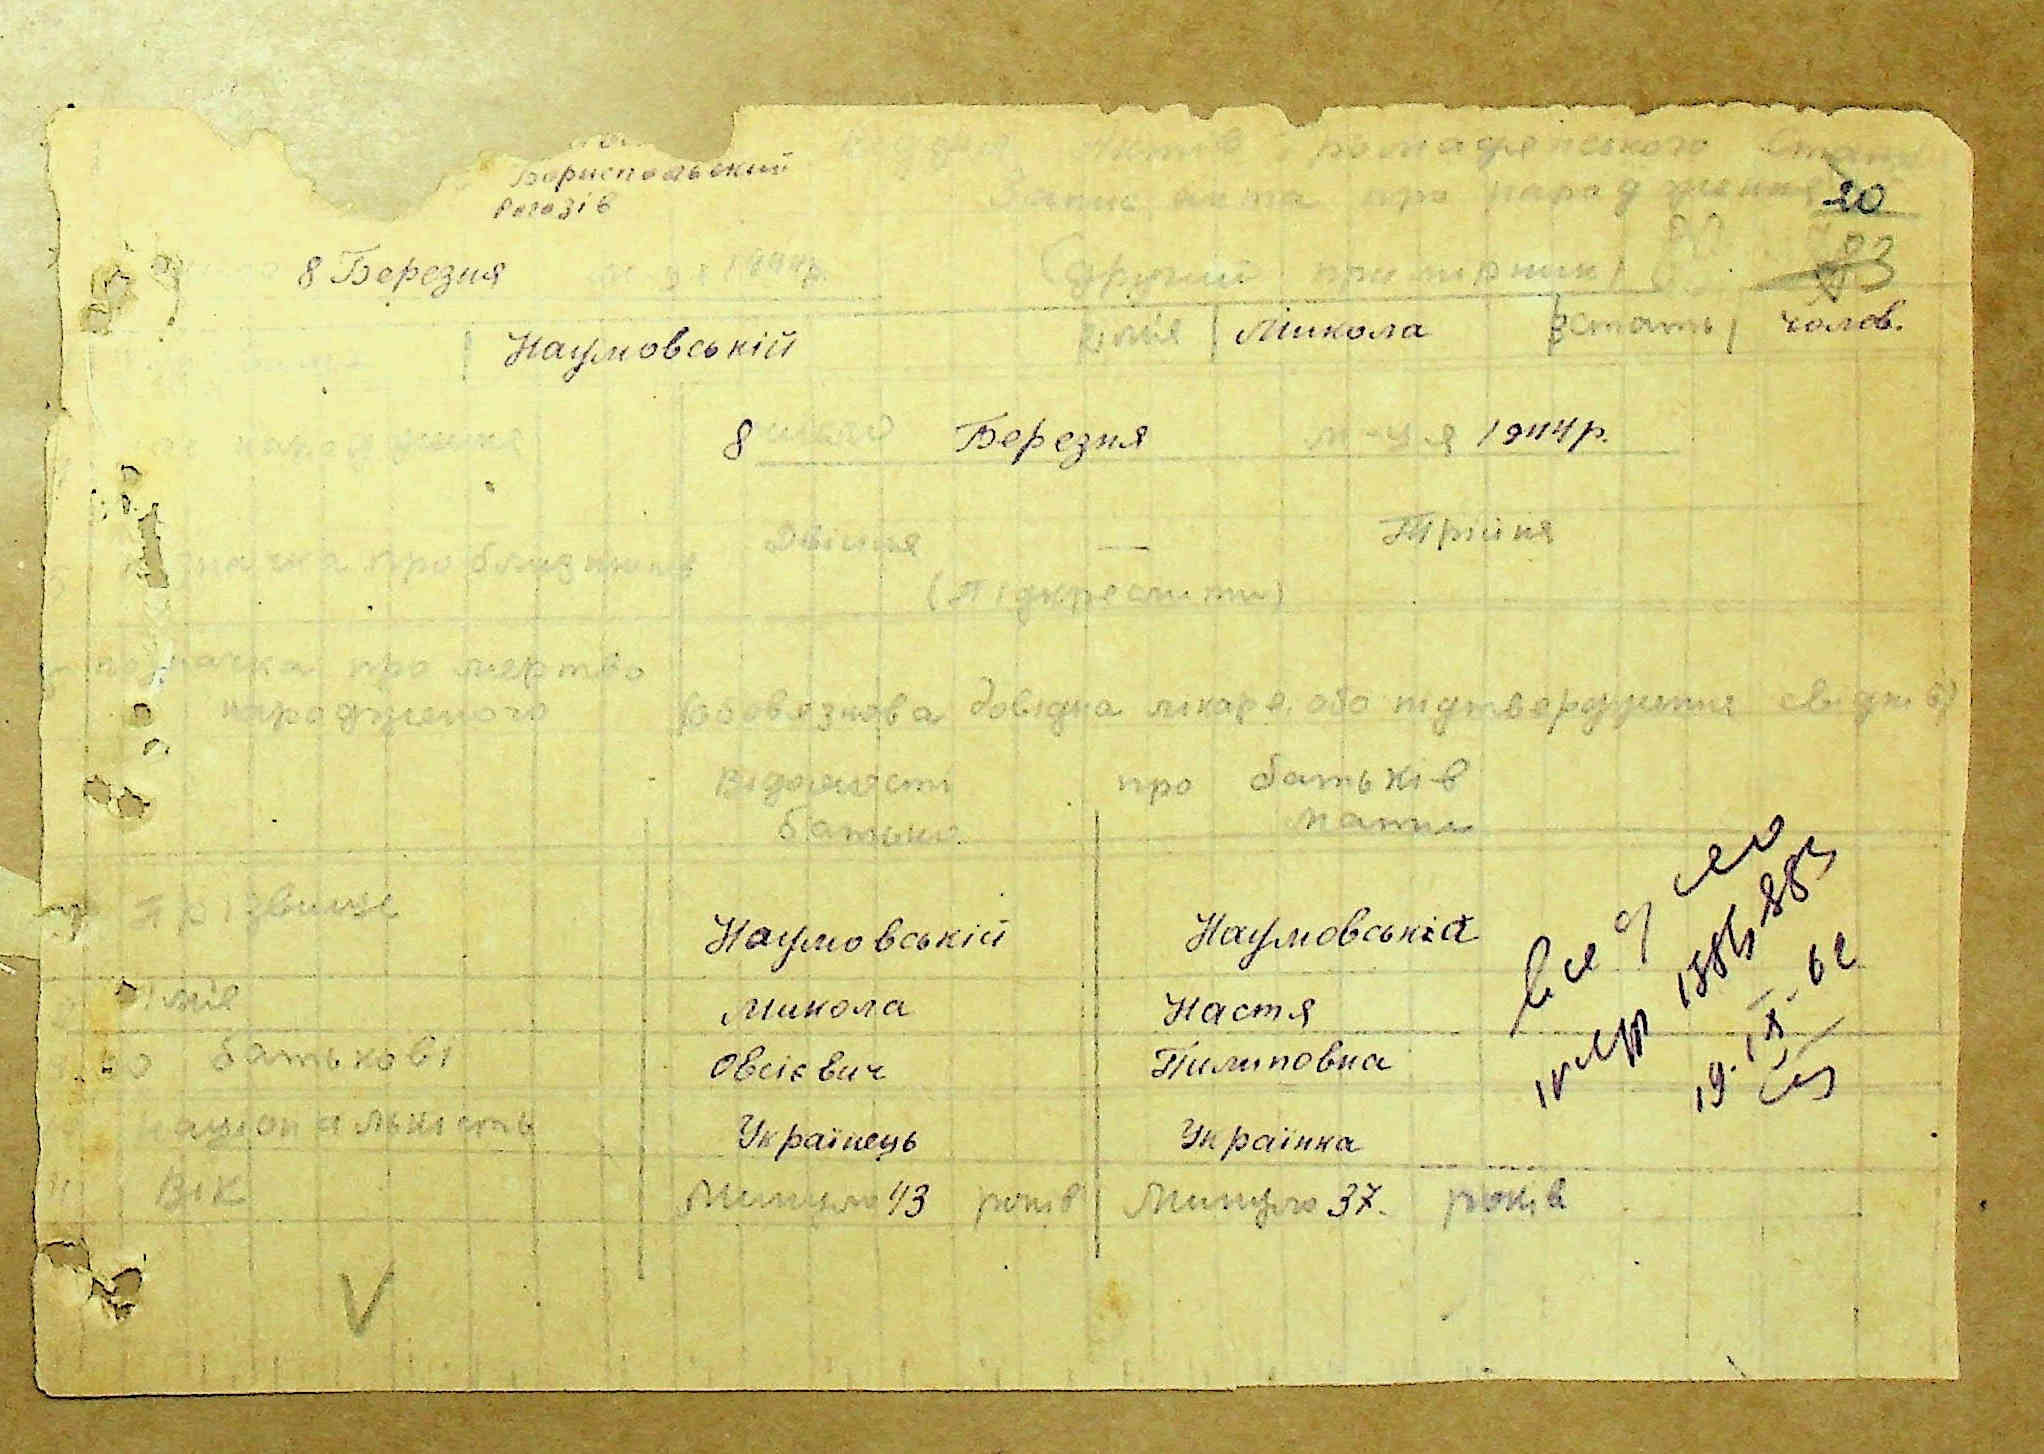 Бориспольский
Рогозів
Актів громадянського Стану
Запис акта про народження
20
8 Березня м-ця 1944р.
(другий примірник)
83
Наумовській
ім'я Микола
Стать чолов.
народження
8 число Березня м-ця 1944р.
про близнюків
Двійня — Трійня
(Підкреслити)
позначка про мертво
народженого
(обовязкова довідка лікаря або підтвердження свідків)
Відомості про батьків
батько мати
Прізвище Наумовській Наумовська
ім'я Микола Настя
По батькові Овсієвич Пилиповна
національність Українець Українка
Вік Минуло 43 років Минуло 37. років
19.IX.62
V